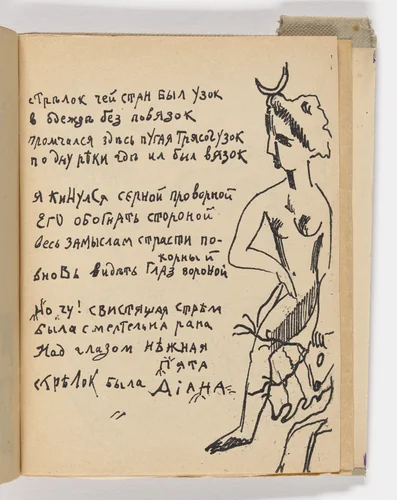 стрѣлок чей стан был узок
в одежда без повязок
промчался здѣсь пугая трясогузок
по дну рѣки гдѣ ил был вязок
Я кинулся серной проворной
Его обогнать стороной
Весь замыслам страсти по-
корный
вновь видать глаз вороной
Но чу! свистящая стрѣм
была смертельна рана
Над глазом нѣжная
пята
стрѣлок была Дiана